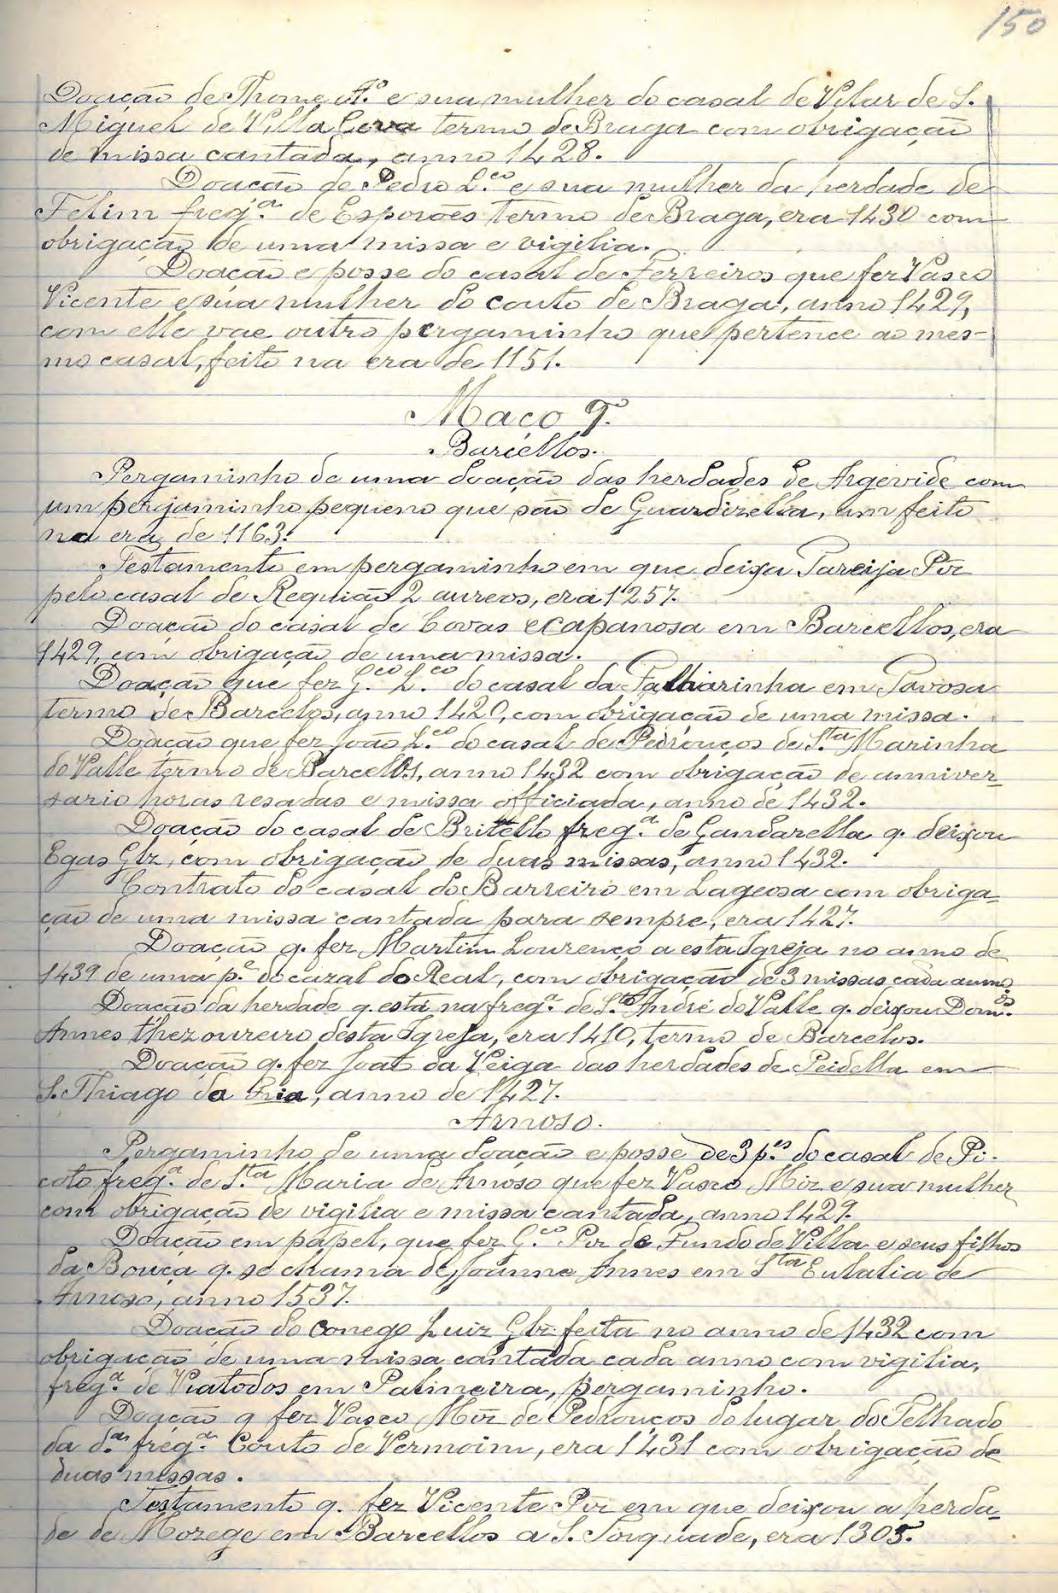 150
Doação de Thome A.º e sua mulher do casal de Vilar de S.
Miguel de Villa Cova termo de Braga com obrigação
de missa cantada, anno 1428.
Doação de Pedro L.co e sua mulher da herdade de
Felim freg.a de Esporões termo de Braga, era 1430 com
obrigação de uma missa e vigilia.
Doação e posse do casal de Ferreiros que fez Vasco
Vicente e sua mulher do couto de Braga, anno 1429,
com elle vae outro pergaminho que pertence ao mes-
mo casal, feito na era de 1151.
Maço 9.
Barcellos.
Pergaminho de uma doação das herdades de Argevide com
um perjaminho pequeno que são de Guardizella, um feito
na era de 1163.
Testamento em pergaminho em que deixa Pareija Piz
pelo casal de Requião 2 aureos, era 1257.
Doação do casal de Covas e capanosa em Barcellos, era
1429, com obrigação de uma missa.
Doação que fez G.co L.co do casal da Palhiarinha em Pavosa
termo de Barcelos, anno 1420, com obrigação de uma missa.
Doação que fez João L.co do casal de Pedrouços de S.ta Marinha
do Valle termo de Barcellos, anno 1432 com obrigação de anniver-
sario horas resadas e missa officiada, anno de 1432.
Doação do casal de Britello freg.a de Gandarella q. deixou
Egas Glz, com obrigação de duas missas, anno 1432.
Contrato do casal do Barreiro em Lageosa com obriga-
ção de uma missa cantada para sempre, era 1427.
Doação q. fez Martim Lourenço a esta Igreja no anno de
1439 de uma p.e do cazal do Real, com obrigação de 3 missas cada anno.
Doação da herdade q. está na freg.a de S.to André do Valle q. deixou Dom.os
Annes thezoureiro desta Igreja, era 1410, termo de Barcelos.
Doação q. fez Joat da Veiga das herdades de Peidella em
S. Thiago da Inia, anno de 1427.
Arnoso.
Pergaminho de uma doação e posse de 3 p.es do casal de Pi-
coto freg.a de S.ta Maria de Arnoso que fez Vasco Miz e sua mulher
com obrigação de vigilia e missa cantada, anno 1429.
Doação em papel, que fez G.co Piz do Fundo de Villa e seus filhos
da Bouça q. se chama de Joanne Annes em S.ta Eulalia de
Arnoso, anno 1537.
Doação do conego Luiz Glz feita no anno de 1432 com
obrigação de uma missa cantada cada anno com vigilia,
freg.a de Viatodos em Palineira, pergaminho.
Doação q fez Vasco Miz de Pedrouços do lugar do Telhado
da d.as freg.as Couto de Vermoim, era 1431 com obrigação de
duas missas.
Testamento q. fez Vicente Piz em que deixou a herda-
de de Morege em Barcellos a S. Torquade, era 1305.